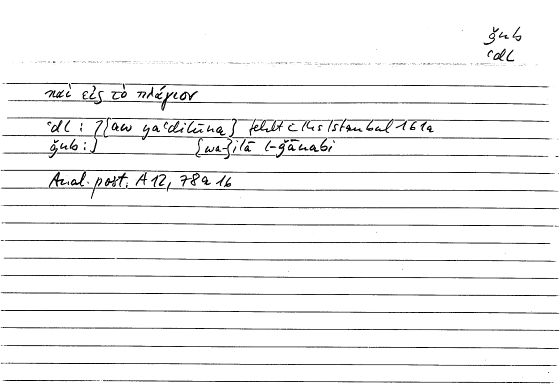 ǧnb
ʿdl
καὶ εἰς τὸ πλάγιον
ʿdl : ] {aw yaʿdilūna} fehlt c Hs Istanbul 161a
ǧnb : ] {wa-} ilā l-ǧānabi
Anal. post. A 12, 78 a 16